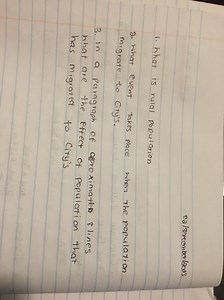 03/September/2025
1. What is rural population
2. What event takes place when the population
migrate to City's.
3. In a paragraph of aproximatlb 8 lines
What are the effect of population that
has migrated to City's